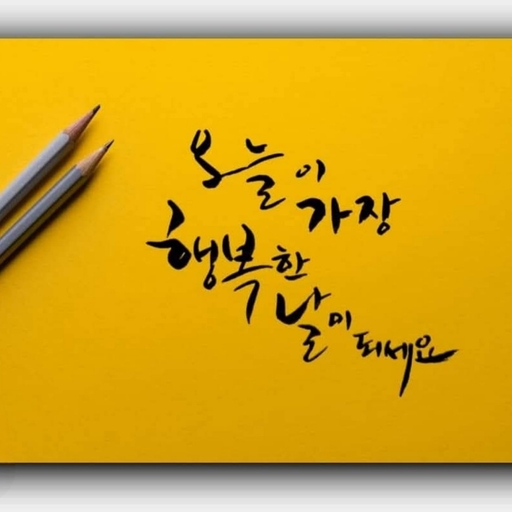 오늘이
가장
행복한
날이
되세요